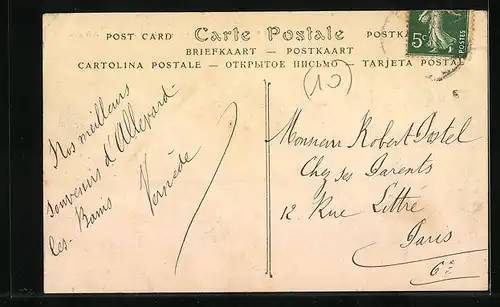 POST CARD — Carte Postale — POSTKA
BRIEFKAART — POSTKAART
CARTOLINA POSTALE — ОТКРЫТОЕ ПИСЬМО — TARJETA POSTAL
5c
POSTES
(10)
Nos meilleurs
souvenirs d'Allevard-
les-Bains
Vernède
Monsieur Robert Postel
Chez ses Parents
12 Rue Littré
Paris
6e